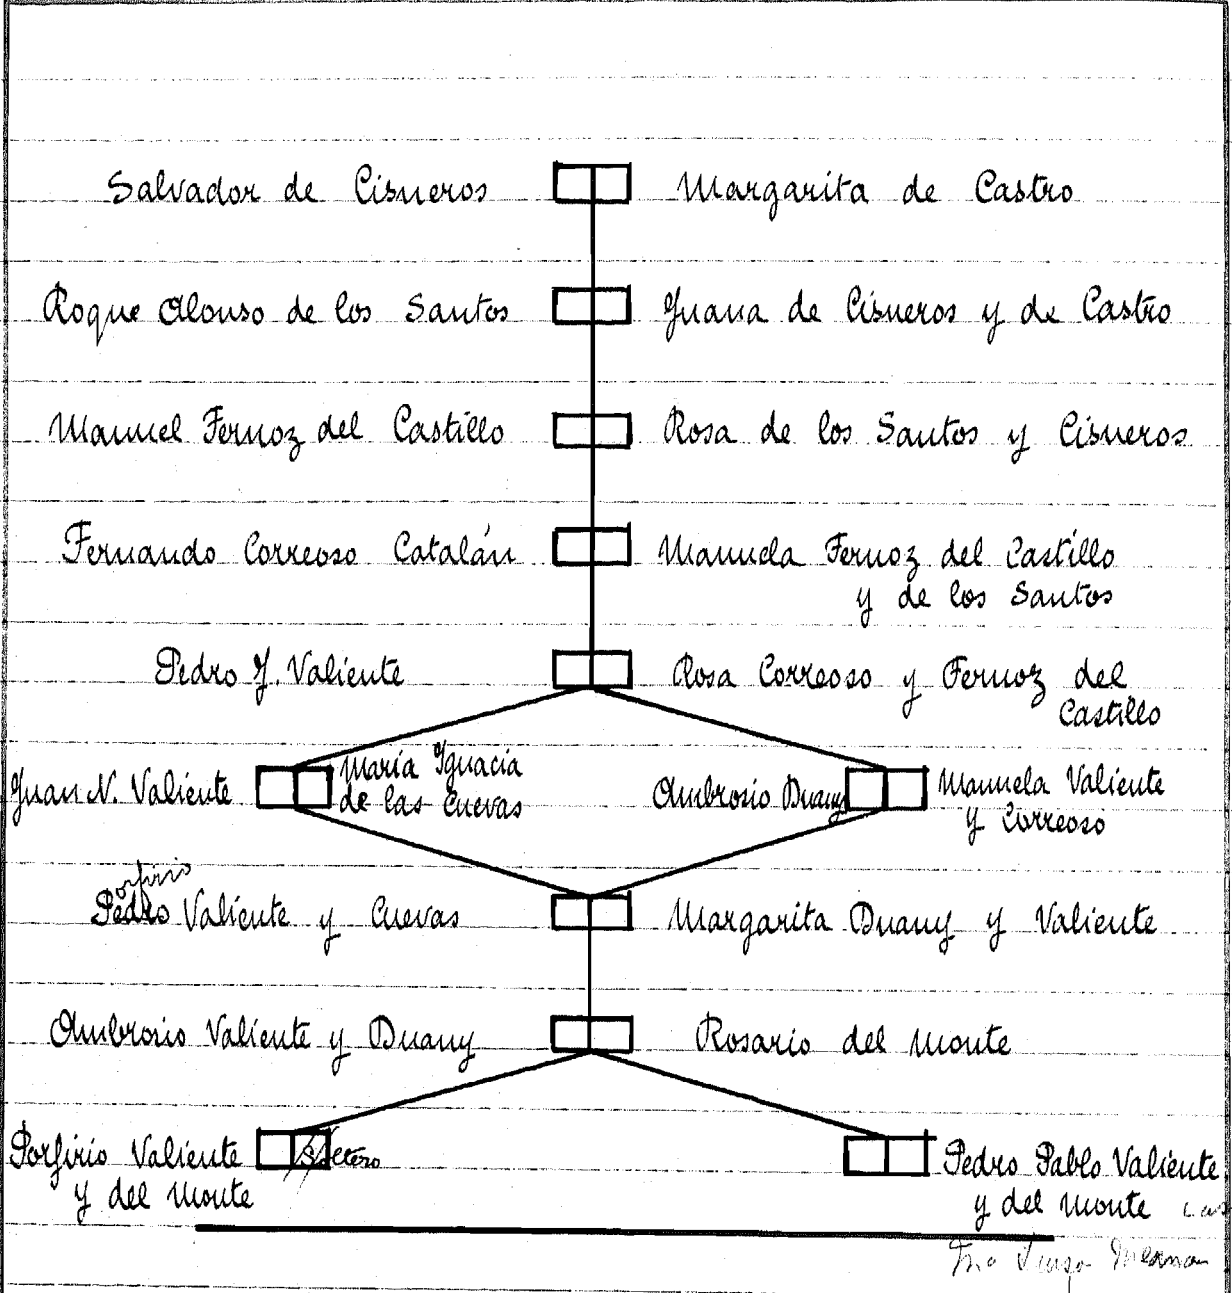 Salvador de Cisneros Margarita de Castro
Roque Alonso de los Santos Juana de Cisneros y de Castro
Manuel Fernoz del Castillo Rosa de los Santos y Cisneros
Fernando Correoso Catalán Manuela Fernoz del Castillo
y de los Santos
Pedro J. Valiente Rosa Correoso y Fernoz del
Castillo
Juan N. Valiente María Ignacia
de las Cuevas
Ambrosio Duany Manuela Valiente
y Correoso
orfirio
Pedro Valiente y Cuevas Margarita Duany y Valiente
Ambrosio Valiente y Duany Rosario del Monte
Porfirio Valiente
y del Monte
Pedro Pablo Valiente
y del Monte